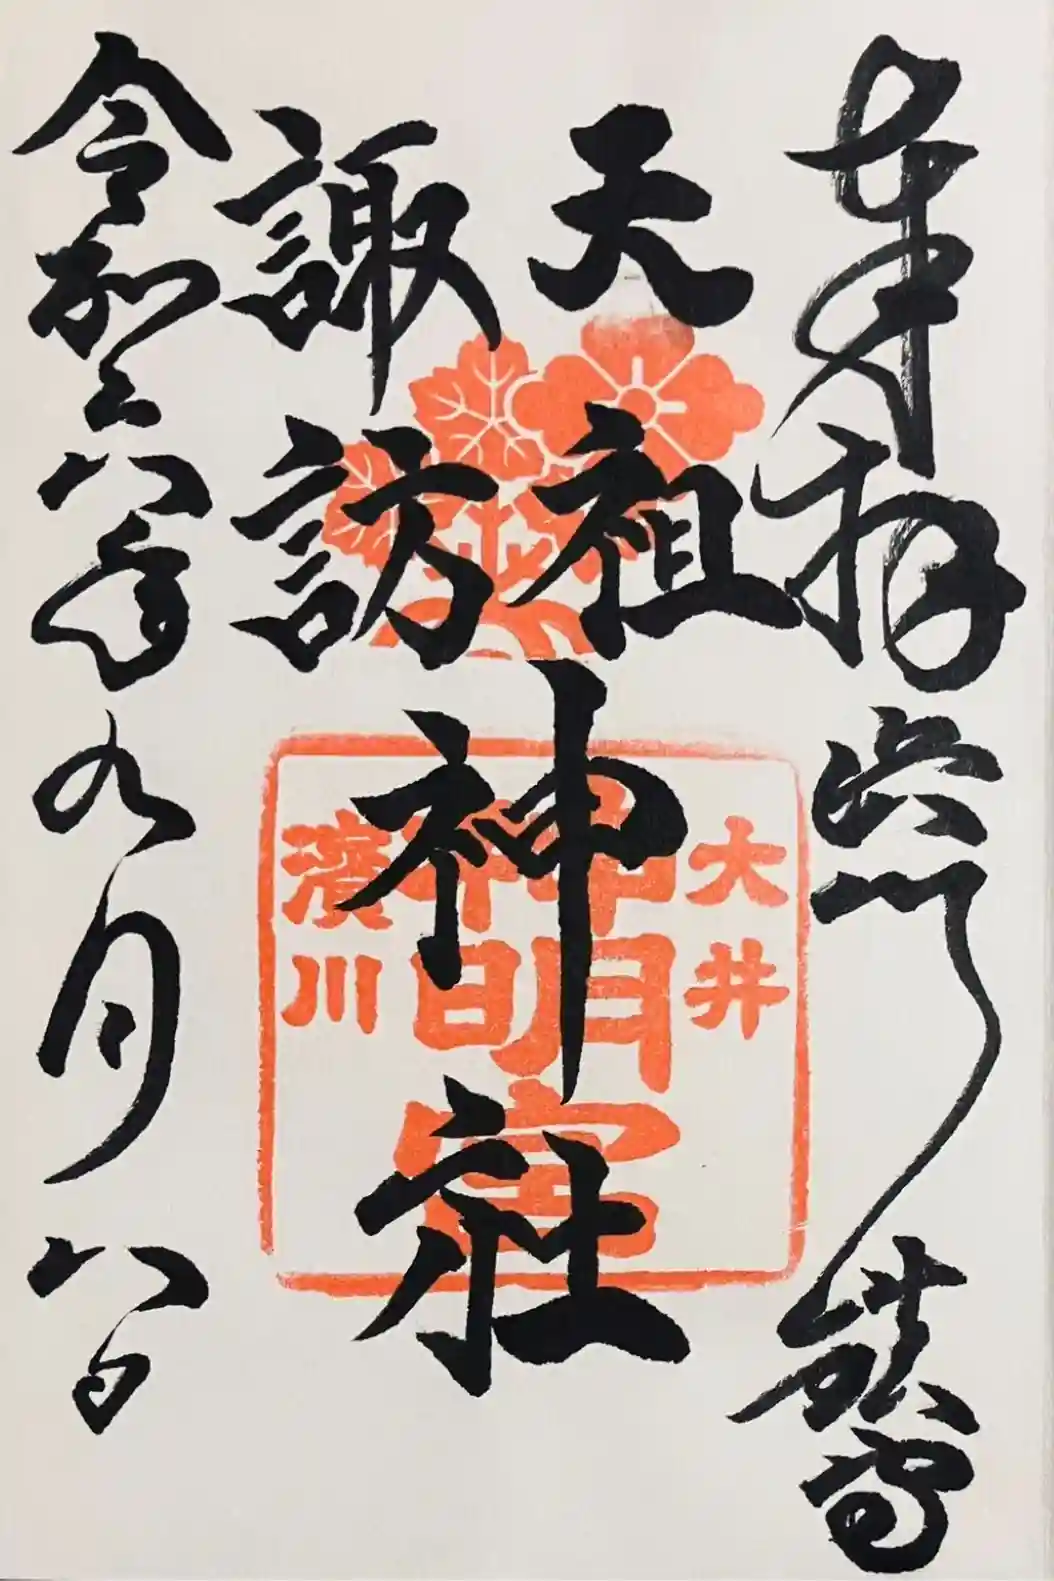 奉拝
天祖
諏訪
神社
令和六年九月八日
大井
神明宮
濱川